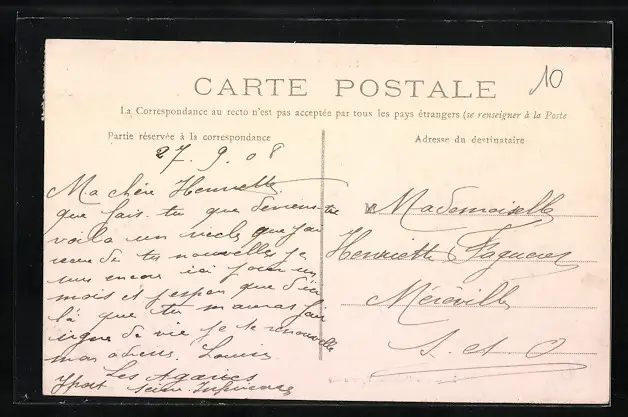 CARTE POSTALE
10
La Correspondance au recto n'est pas acceptée par tous les pays étrangers (se renseigner à la Poste
Partie réservée à la correspondance
Adresse du destinataire
27. 9. 08
Ma chère Henriette
que fais-tu que deviens-tu
voila un siecle que j'ai
recu de tes nouvelles je
suis encore ici pour un
mois et j'espere que d'ici
là que tu m'auras fait
signe de vie je te renouvelle
mon adress. Louise
Les Agaves
Yport Seine-Inférieure
Mademoiselle
Henriette
Méréville
S. et O